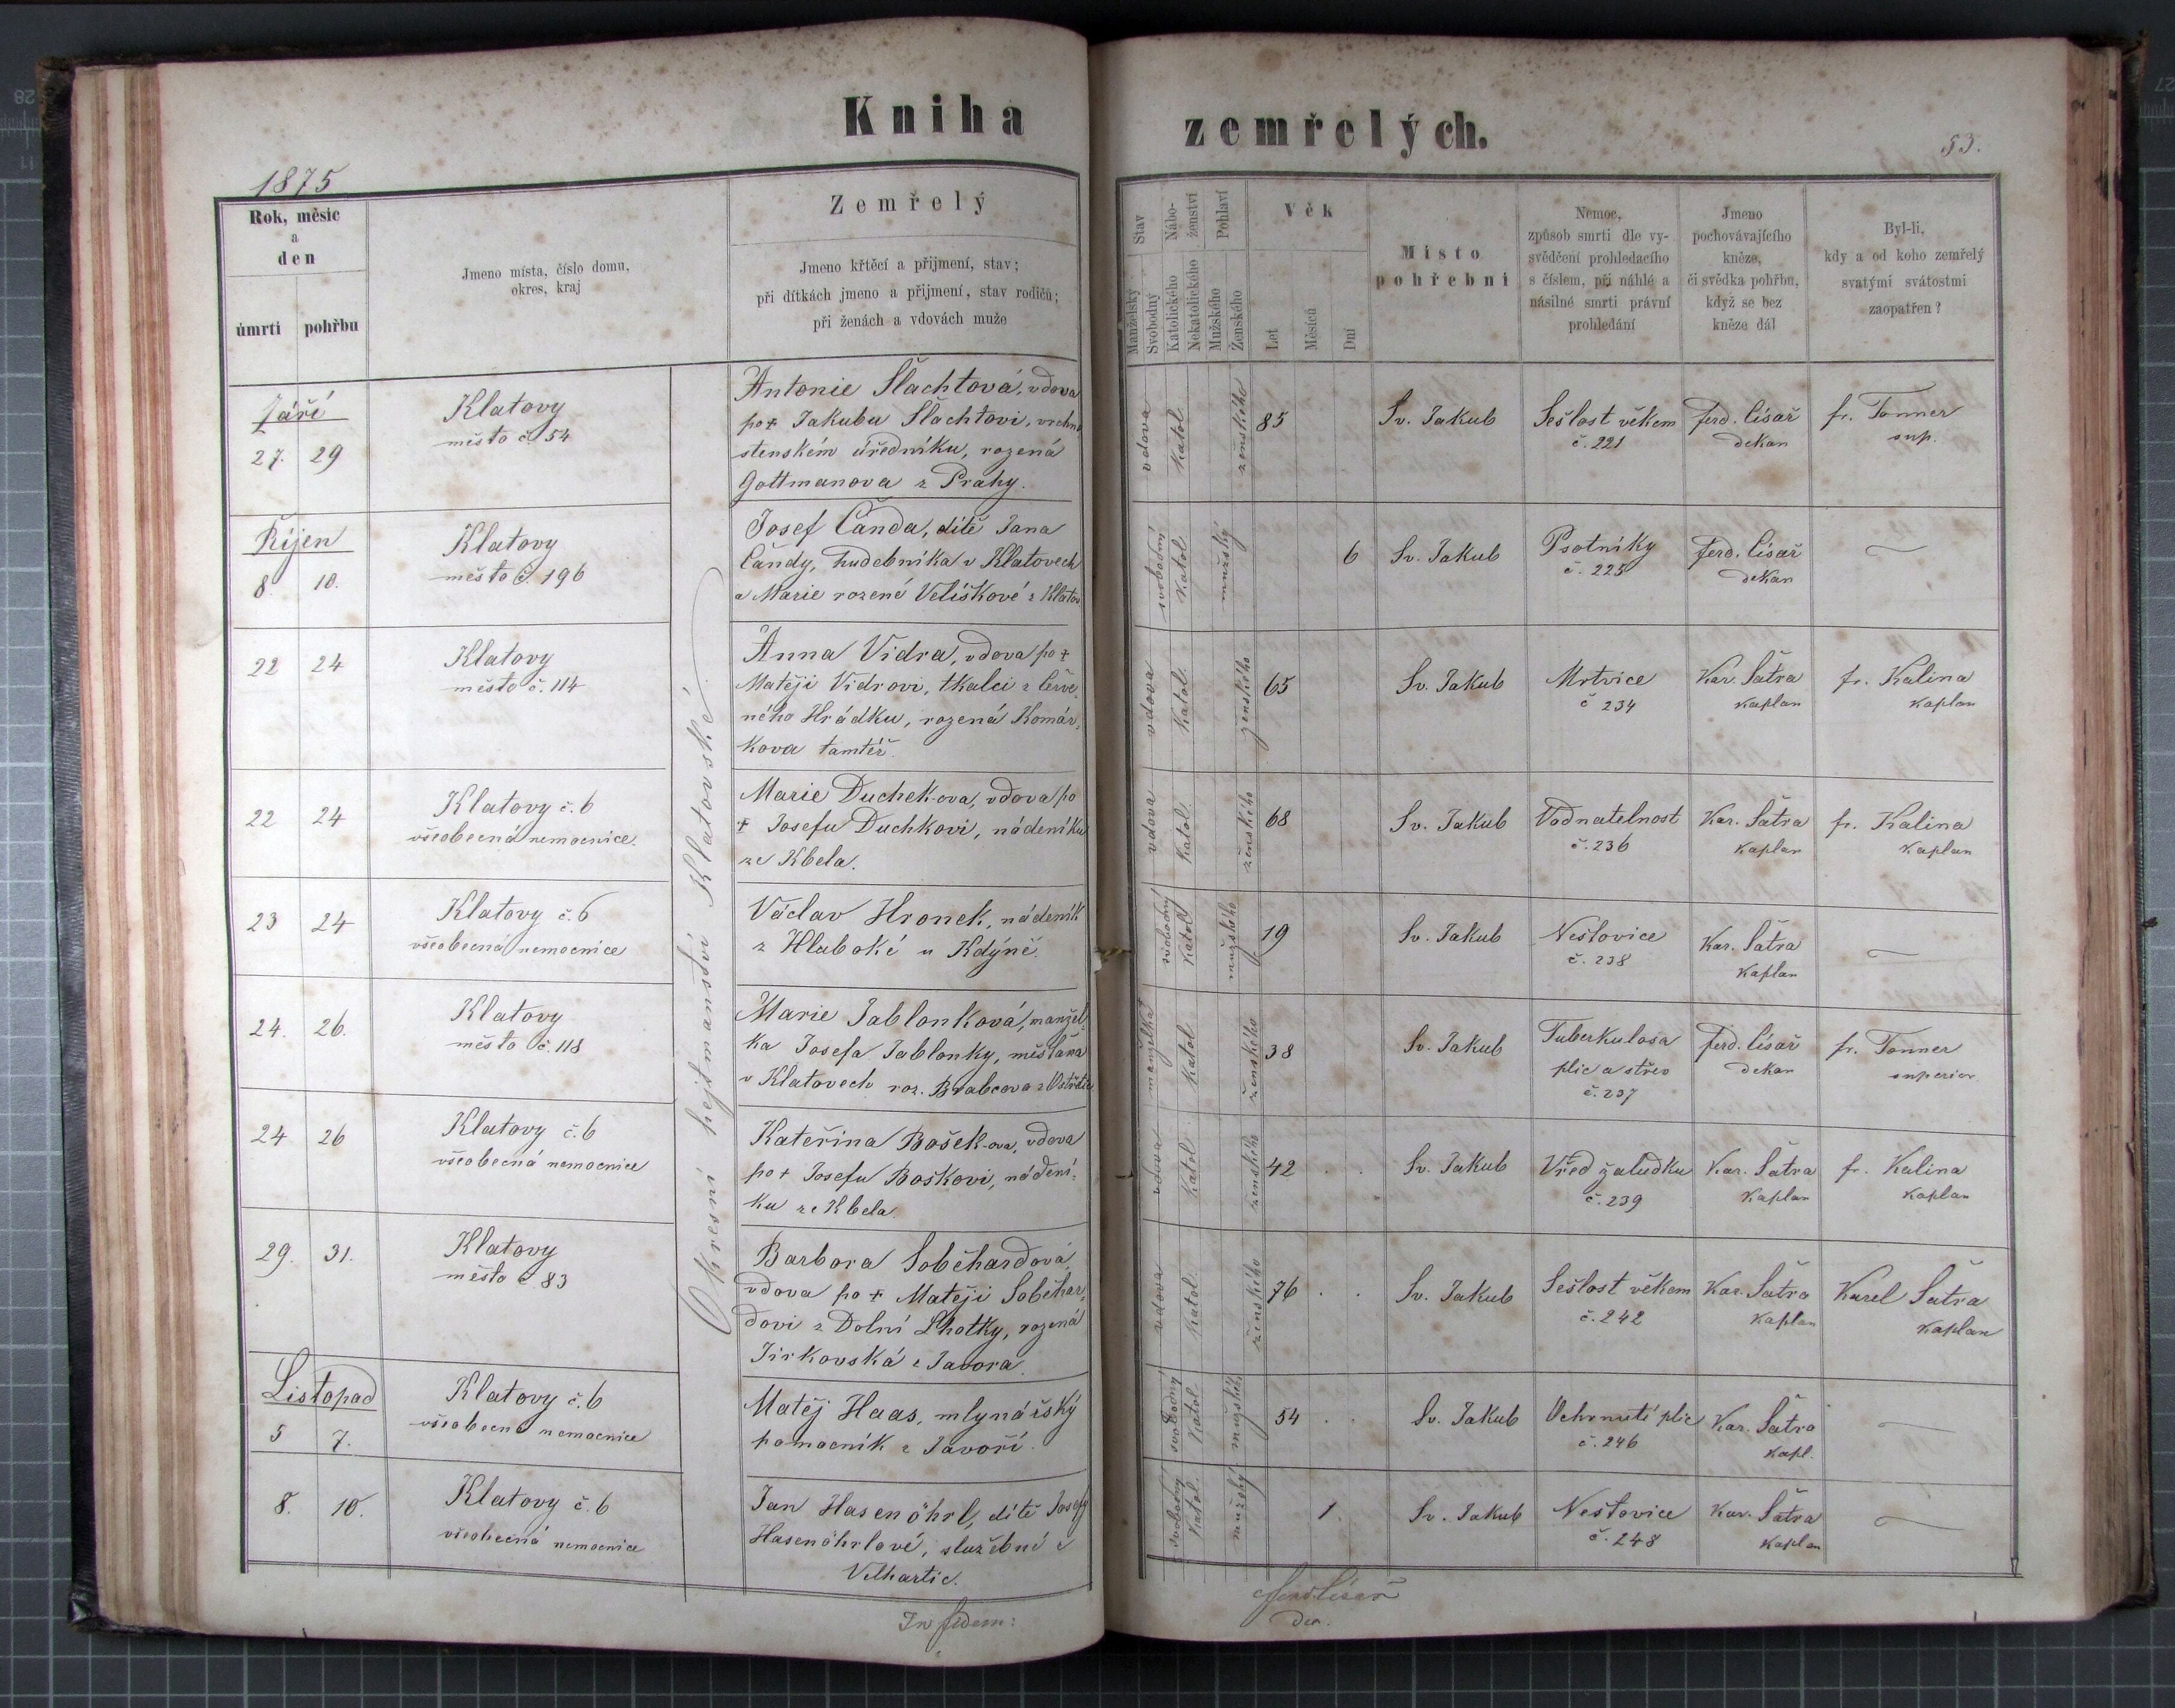 Kniha zemřelých.
1875
53.
Rok, měsíc
a
den
úmrtí pohřbu
Jmeno místa, číslo domu,
okres, kraj
Zemřelý
Jmeno křtěcí a přijmení, stav;
při dítkách jmeno a přijmení, stav rodičů;
při ženách a vdovách muže
Stav
Manželský
Svobodný
Nábo-
ženství
Katolického
Nekatolického
Pohlaví
Mužského
Ženského
Věk
Let
Měsíců
Dní
Místo
pohřební
Nemoc,
způsob smrti dle vy-
svědčení prohledacího
s číslem, při náhlé a
násilné smrti právní
prohledání
Jmeno
pochovávajícího
kněze,
či svědka pohřbu,
když se bez
kněze dál
Byl-li,
kdy a od koho zemřelý
svatými svátostmi
zaopatřen?
Okresní hejtmanství Klatovské
Září
27. 29
Klatovy
město č. 54
Antonie Šlachtová, vdova
po + Jakubu Šlachtovi, vrchno
stenském úředníku, rozená
Gottmanova z Prahy.
vdova katol. ženského 85
Sv. Jakub
Sešlost věkem
č. 221
Ferd. Císař
děkan
fr. Tonner
sup.
Říjen
8 10.
Klatovy
město č. 196
Josef Čanda, dítě Jana
Čandy, hudebníka v Klatovech
a Marie rozené Velíškové z Klatov
svobodný katol. mužský 6
Sv. Jakub
Psotníky
č. 225
Ferd. Císař
děkan
22 24
Klatovy
město č. 114
Anna Vidra, vdova po +
Matěji Vidrovi, tkalci z Červe
ného Hrádku, rozená Komár-
kova tamtéž.
vdova katol. ženského 65
Sv. Jakub
Mrtvice
č 234
Kar. Šatra
kaplan
fr. Kalina
kaplan
22 24
Klatovy č. 6
všeobecná nemocnice.
Marie Duchek-ova, vdova po
+ Josefu Duchkovi, nádeníku
ze Kbela.
vdova katol. ženského 68
Sv. Jakub
Vodnatelnost
č. 236
Kar. Šatra
kaplan
fr. Kalina
kaplan
23 24
Klatovy č. 6
všeobecná nemocnice
Václav Hronek, nádeník
z Hluboké u Kdýně.
svobodný katol. mužského 19
Sv. Jakub
Neštovice
č. 238
Kar. Šatra
kaplan
24. 26.
Klatovy
město č. 118
Marie Jablonková, manžel-
ka Josefa Jablonky, měšťana
v Klatovech roz. Brabcova z
manželka katol ženského 38
Sv. Jakub
Tuberkulosa
plic a střev
č. 237
Ferd. Císař
děkan
fr. Tonner
superior
24. 26
Klatovy č. 6
všeobecná nemocnice
Kateřina Bošek-ova, vdova
po + Josefu Boškovi, nádení-
ku ze Kbela.
vdova katol ženského 42
Sv. Jakub
Vřed žaludku
č. 239
Kar. Šatra
kaplan
fr. Kalina
kaplan
29. 31.
Klatovy
město č 83
Barbora Soběhardová,
vdova po + Matěji Soběhar-
dovi z Dolní Lhotky, rozená
Jirkovská z Javora.
vdova katol. ženského 76
Sv. Jakub
Sešlost věkem
č. 242
Kar. Šatra
kaplan
Karel Šatra
kaplan
Listopad
5 7.
Klatovy č. 6
všeobecná nemocnice
Matěj Haas, mlynářský
pomocník z Javoří.
svobodný katol. mužské 54
Sv. Jakub
Ochrnutí plic
č. 246
Kar. Šatra
kapl.
8. 10.
Klatovy č. 6
všeobecná nemocnice
Jan Hasenöhrl, dítě Josefy
Hasenöhrlové, služebné z
Velhartic.
svobodný katol. mužský 1.
Sv. Jakub
Neštovice
č. 248
Kar. Šatra
kaplan
In fidem:
Ferd Císař
děk.